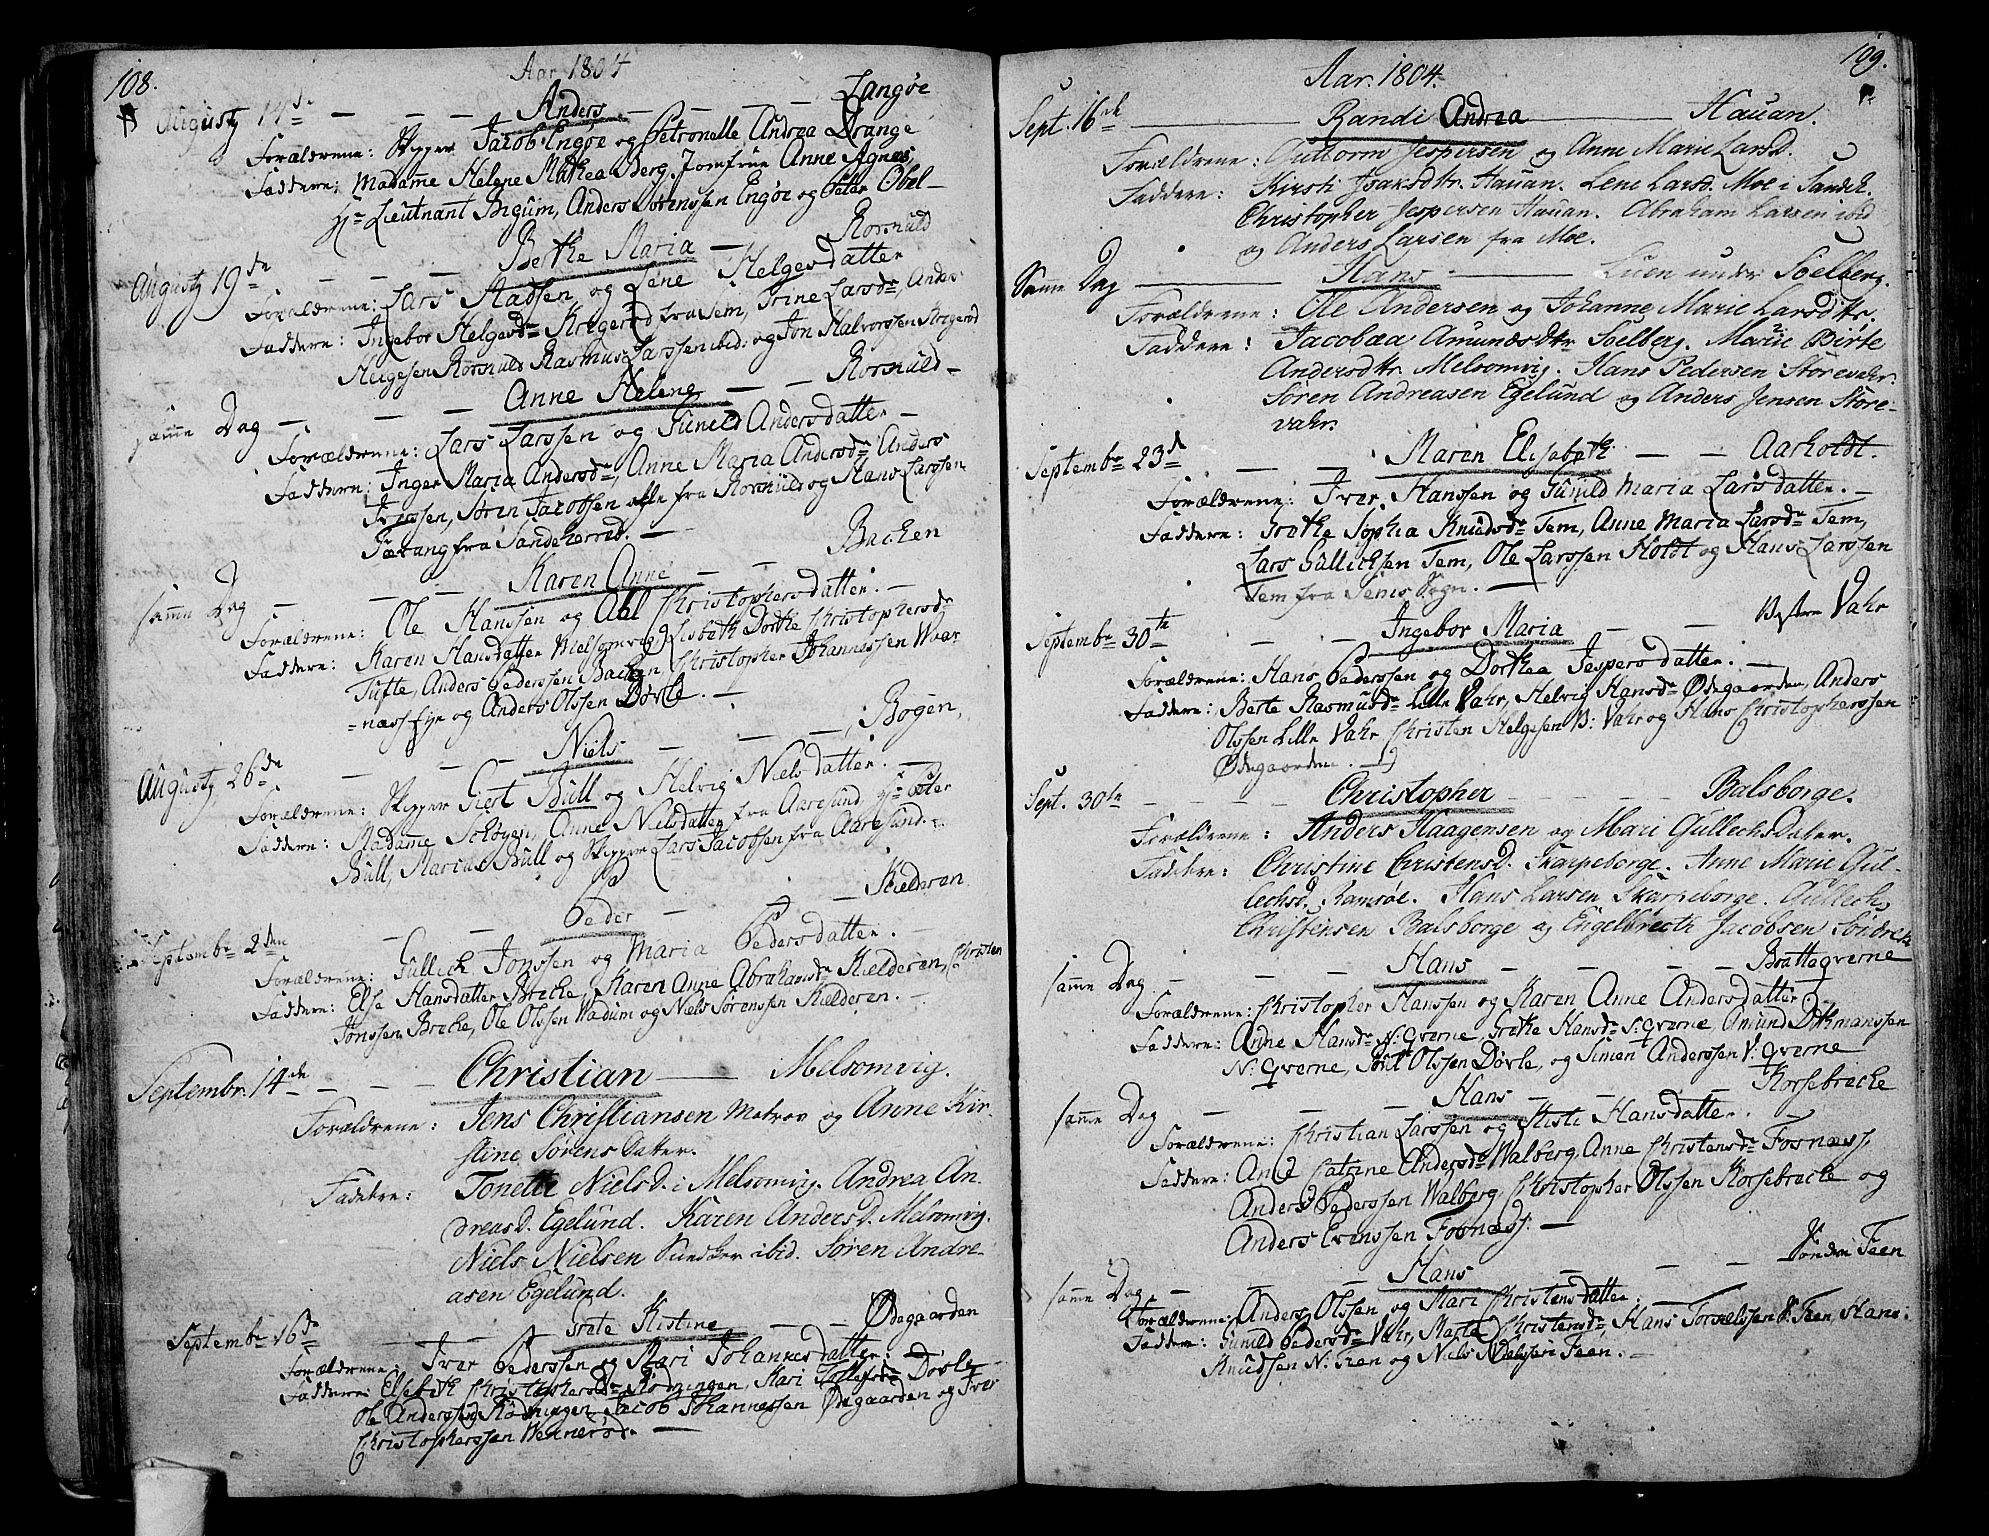 108.
Aar 1804
Augusty 14de — — — Anders — — — — Langøe
Forældrene: Skipper Jacob Engøe og Petronelle Andrea Drange
Faddere: Madame Helene Mathea Berg, Jomfrue Anne Agnes,
Hr Lieutnant Bigum, Anders Sørenssen Engøe og Peter Obel-
Augusty 19de — — — Bethe Maria — Rorsnuld
Forældrene: Lars Madsen og Lene Helgesdatter
Faddere: Ingebor Helgesdr Krogerød fra Sem, Trine Larsdr, Anders
Helgesen Rorsnuld Rasmus Larssen ibid. og Jon Halvorssen Krogerød
samme Dag — — — — Anne Helene — — Rorsnuld —
Forældrene: Lars Larssen og Gunild Andersdatter —
Faddere: Inger Maria Andersdr, Anne Maria Andersdr Anders
Iverssen, Sören Jacobsen alle fra Rorsnuld og Hans Larssen
Færang fra Sandeherred. —
samme Dag — — — Karen Anne — — Backen
Forældrene: Ole Hanssen og Abl Christophersdatter. —
Faddere: Karen Hansdatter Mielsomvig, Lisbeth Dorthe Christophersdr
Tufte, Anders Pederssen Backen, Christopher Johannessen Waar
-næss Eje og Anders Olssen Døvle. —
Augusty 26de — — — Niels — — — — Bogen,
Forældrene: Skipper Giert Bull og Helvig Nielsdatter. —
Faddere: Madamme Schøyen, Anne Nielsdatter fra Aarøsund, Hr Peter
Bull, Marius Bull og Skipper Lars Jacobsen fra Aarøsund. —
Septembr 2den Peder — — — Kielderen
Forældrene: Gullich Jonssen og Maria Pedersdatter. —
Faddere: Else Hansdatter Brecke, Karen Anne Abrahamsdr Kielderen, Christen
Jonssen Brecke, Ole Olssen Wadum og Niels Sørenssen Kielderen. —
Septembr. 14de — — — Christian — Melsomvig.
Forældrene: Jens Christiansen Matros og Anne Kir-
stine Sørens Datter.
Faddere: Tonette Nielsd. i Melsomvig. Andrea An-
dreasd. Egelund. Karen Andersd. Melsomvig.
Niels Nielsen Sundker ibid. Søren Andre-
asen Egelund.
Septembr 16de — — Grete Kistine — — Ødegaarden
Forældrene: Iver Pederssen og Mari Johannesdatter. —
Faddere: Elsebeth Christophersdr Rødningen, Mari Tollefsdr Døvle
Ole Anderssen Rødningen Jacob Johannessen Ødegaarden og Iver
Christopherssen Wennerød. —
109.
Aar. 1804.
Sept. 16de — Randi Andrea — Hauan.
Forældrene: Guttorm Jespersen og Anne Marie Larsd.
Faddere: Kirsti Isaksdtr. Hauan. Lene Larsd. Moe i Sandeh.
Christopher Jespersen Hauan. Abraham Larsen ibid
og Anders Larsen fra Moe.
Samme Dag — Hans — Luen under Soelberg.
Forældrene: Ole Andersen og Johanne Marie Larsdtr.
Faddere: Jacobæa Amundsdtr Soelberg. Marie Birte
Andersdtr. Melsomvig. Hans Pedersen Storevahr.
Søren Andreasen Egelund og Anders Jensen Store-
vahr.
Septembr 23de — — Maren Elisabeth — — Aarholdt.
Forældrene: Iver Hanssen og Gunild Maria Larsdatter. —
Faddere: Grethe Sophia Knudsdr Tem, Anne Maria Larsdr Tem,
Lars Gullichsen Tem, Ole Larssen Holdt og Hans Larssen
Tem fra Sems Sogn. —
Septembr 30te — — Ingebor Maria — — Østre Vahr
Forældrene: Hans Pederssen og Dorthea Jespersdatter. —
Faddere: Berte Rasmusdr Lille Vahr, Helvig Hansdr Ødegaarden, Anders
Olssen Lille Vahr Christen Helgesen Ø: Vahr og Hans Christopherssen
Ødegaarden. —
Sept. 30te — — — Christopher — — — Balsborge.
Forældrene: Anders Haagensen og Mari Gullechs Dater.
Faddere: Christine Christensd. Skarpeborge. Anne Marie Gul-
lechsd. Ramsøe. Hans Larsen Skarpeborge. Gullech
Christensen Balsborge og Engelbrecth Jacobsen
samme Dag. — — — Hans — — — — Bratteqverne
Forældrene: Christopher Hanssen og Karen Anne Andersdatter.
Faddere: Anne Hansdr N: Qverne, Grethe Hansdr S: Qverne, Amund Ditmanssen
N: Qverne, Joni Olssen Døvle, og Simen Anderssen V: Qverne
samme Dag — — — Hans — — Korsebrecke
Forældrene: Christian Larssen og Kisti Hansdatter.
Faddere: Ane Catrine Andersdr Walberg, Anne Christensdr Fosnæss,
Anders Pederssen Walberg, Christopher Olssen Korsebrecke og
Anders Evenssen Fosnæss. —
samme Dag — — — Hans — — — Søndre Feen
Forældrene: Anders Olssen og Mari Christensdatter.
Faddere: Gunild Pedersdr Vahr, Marte Christensdr, Hans S: Feen, Hans
Knudsen N: Feen og Niels Feen. —